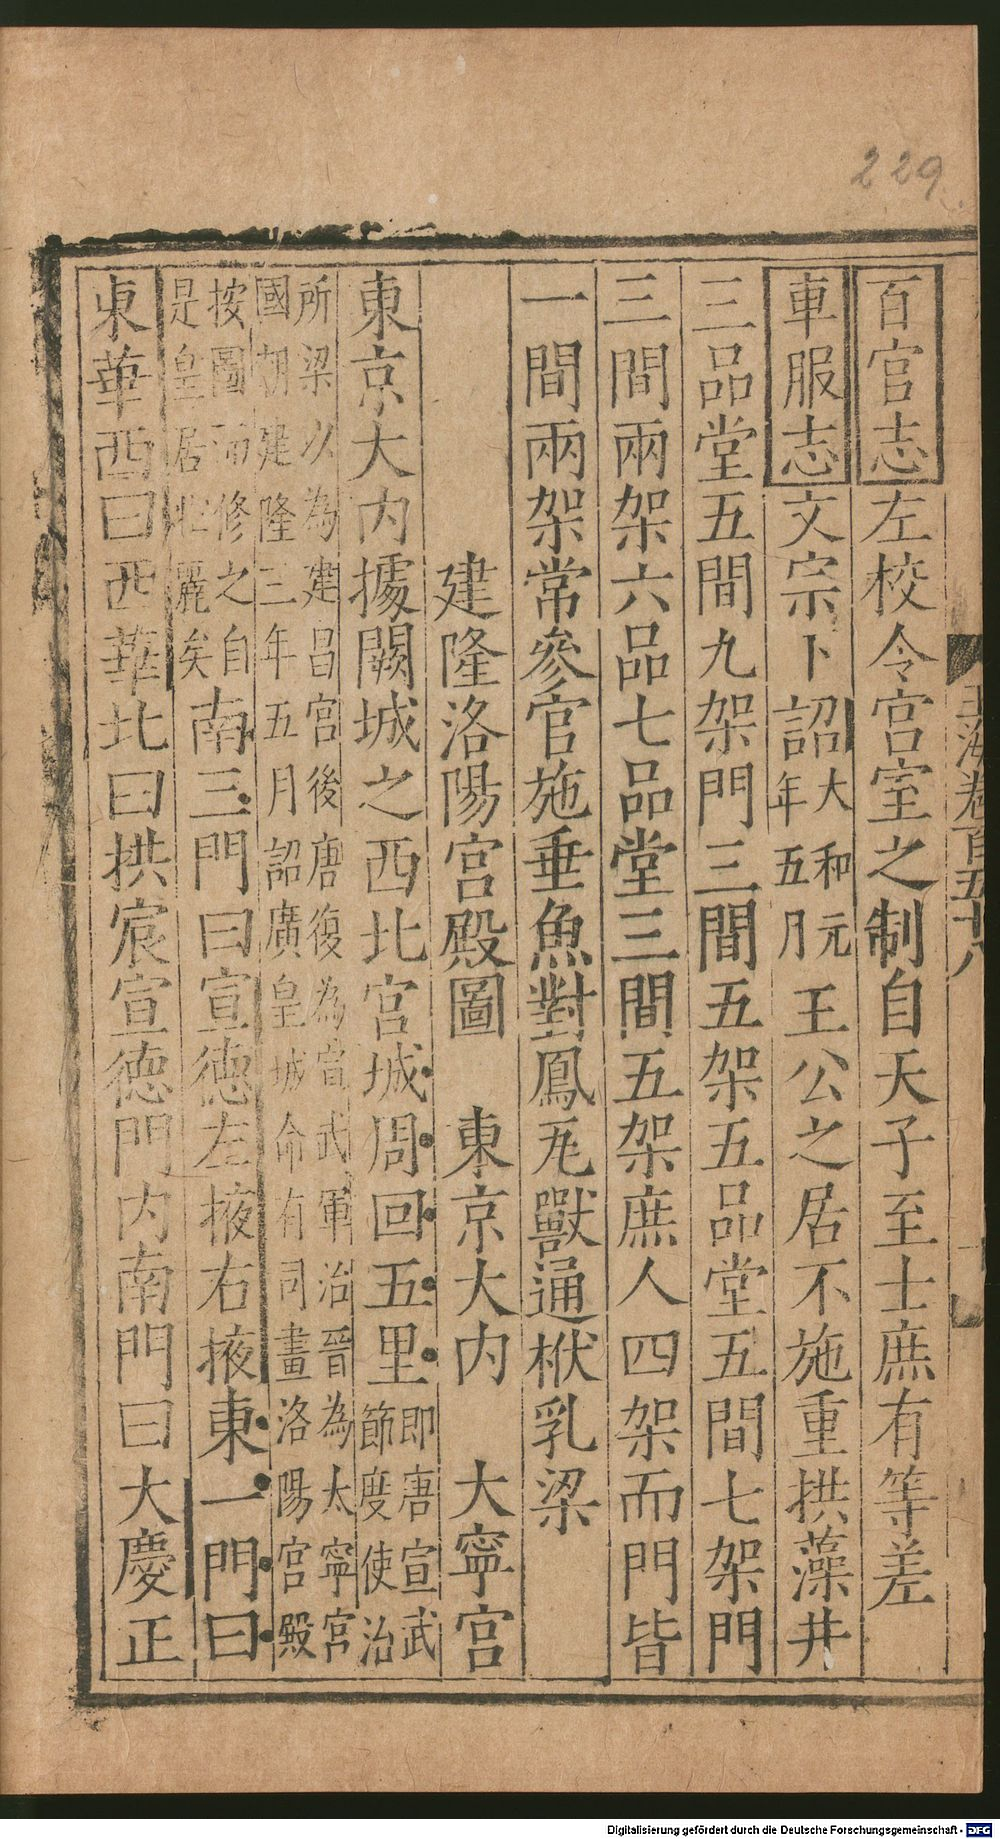 229
百官志左校令宮室之制自天子至士庶有等差
車服志文宗卜詔大和元年五月王公之居不施重拱藻井
三品堂五間九架門三間五架五品堂五間七架門
三間兩架六品七品堂三間五架庶人四架而門皆
一間兩架常參官施垂魚對鳳瓦獸通栿乳梁
建隆洛陽宮殿圖 東京大內 大寧宮
東京大內據闕城之西北宮城周回五里即唐宣武節度使治
所梁以為建昌宮後唐復為宣武軍治晉為大寧宮
國朝建隆三年五月詔廣皇城命有司畫洛陽宮殿
按圖而修之自
是皇居壯麗矣南三門曰宣德左掖右掖東一門曰
東華西曰西華北曰拱宸宣德門內南門曰大慶正
玉海卷百五十八
Digitalisierung gefördert durch die Deutsche Forschungsgemeinschaft - DFG